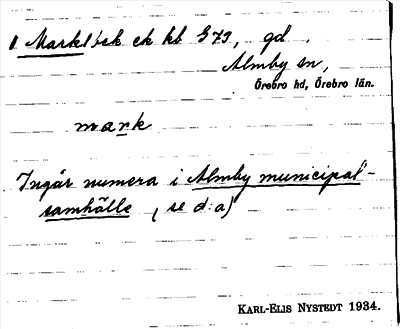 1 Mark 1/2 ek ek kb S73, gd.
Almby sn,
Örebro hd, Örebro län.
mark
Ingår numera i Almby municipal-
samhälle (se d:a)
KARL-ELIS NYSTEDT 1934.